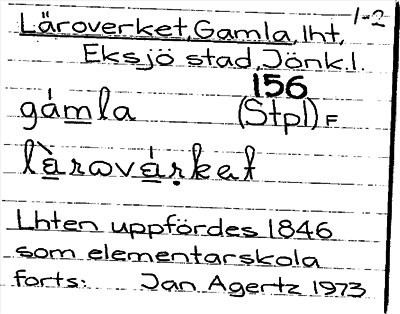 1-2
Läroverket, Gamla, lht,
Eksjö stad, Jönk.l.
156
gámla (Stpl) F
lä̀rωvá̤rkat
Lhten uppfördes 1846
som elementarskola
forts: Jan Agertz 1973